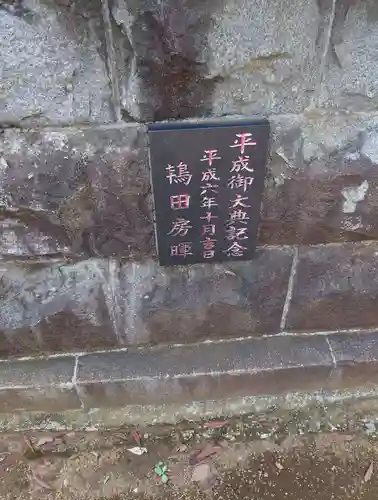 平成御大典記念
平成六年十月吉日
鵜田房暉